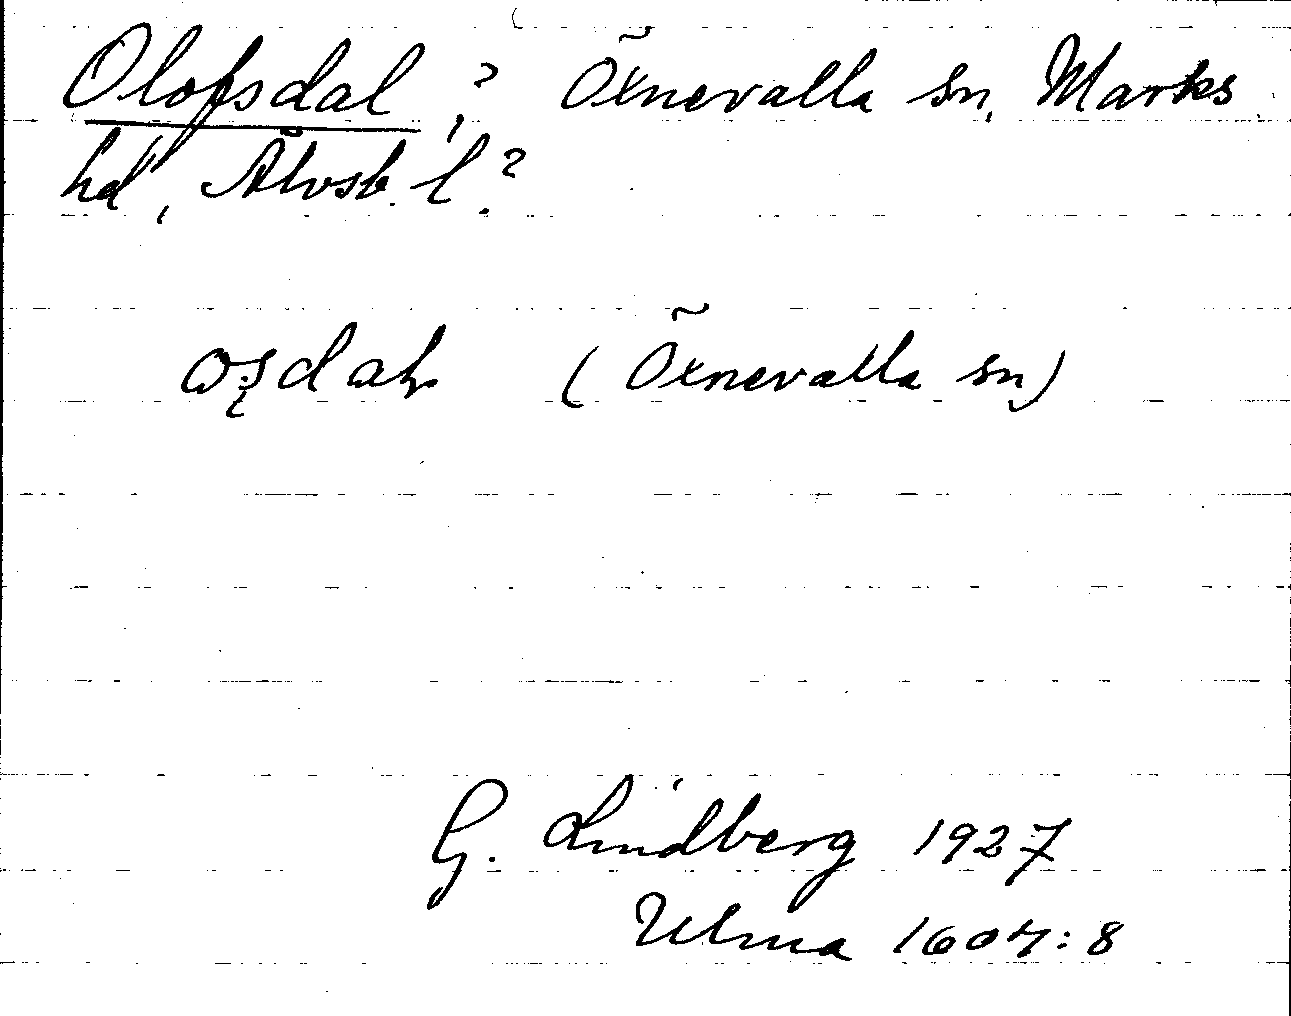 Olofsdal,? Öxnevalla sn, Marks
hd, Älvsb. l.?
(Öxnevalla sn)
G. Lindberg 1927
Ulma 1607:8